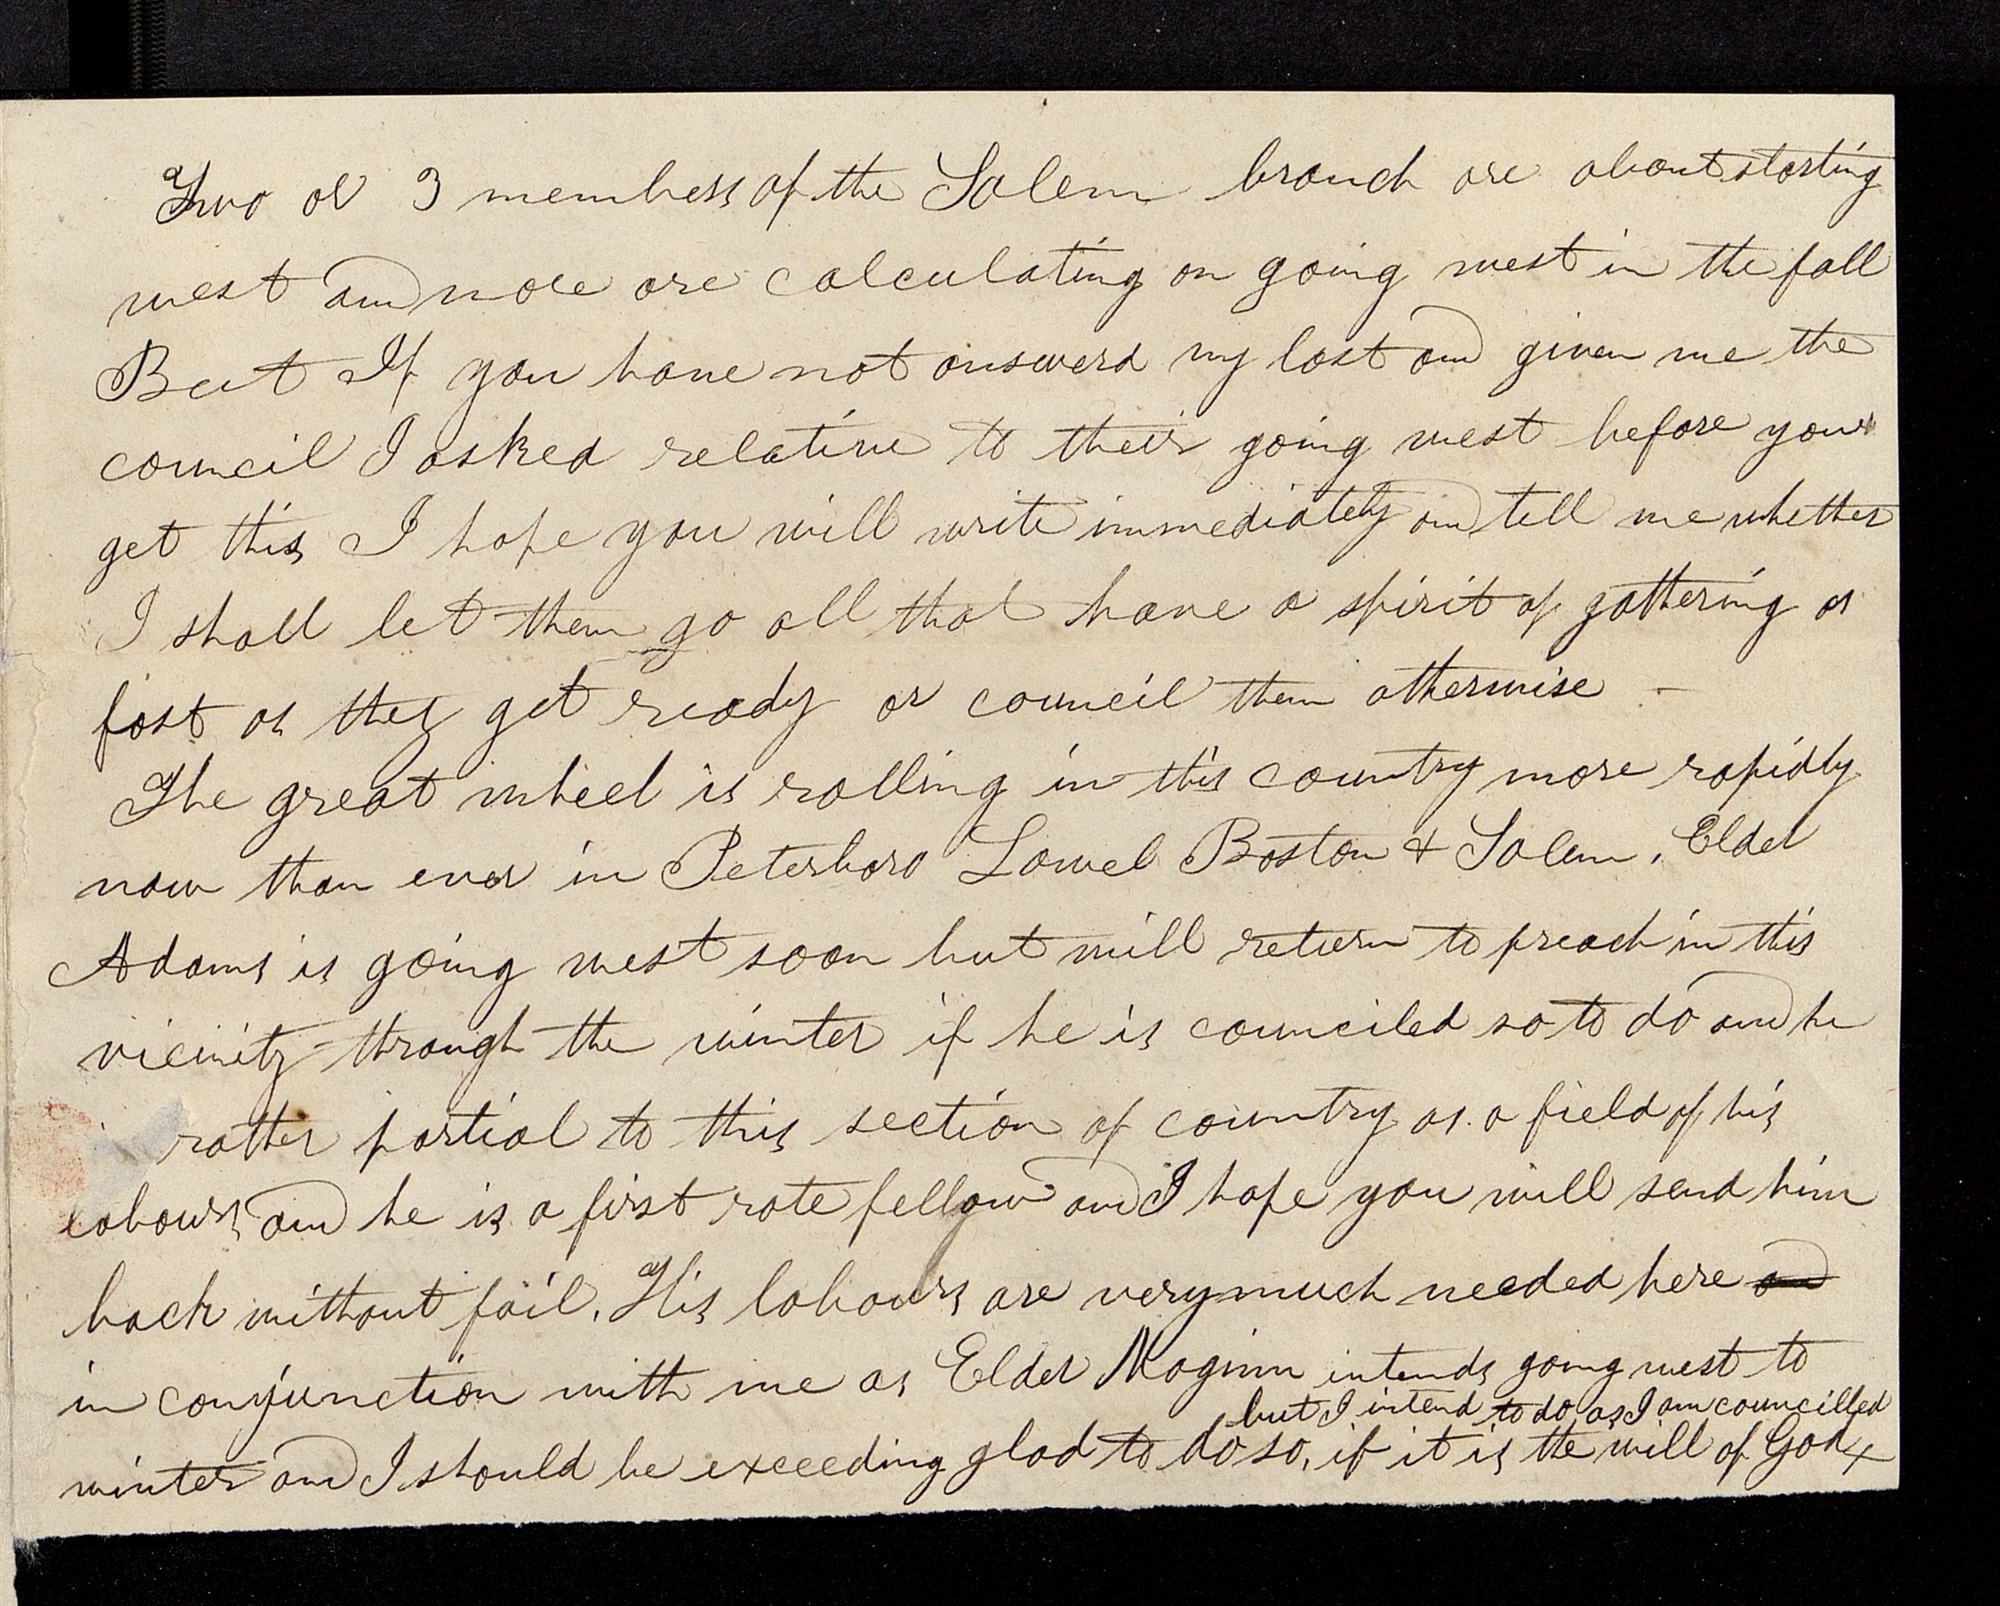 Two or 3 members of the Salem branch are about starting
west and more are calculating on going west in the fall
But If you have not answerd my last and given me the
council I asked relative to their going west before you
get this I hope you will write immediately and tell me whether
I shall let them go all that have a spirit of gathering as
fast as they get ready or council them otherwise —
The great wheel is rolling in this country more rapidly
now than ever in Peterboro Lowel Boston & Salem. Elder
Adams is going west soon but will return to preach in this
vicinity through the winter if he is counciled so to do and he
rather partial to this section of country as a field of his
labours and he is a first rate fellow and I hope you will send him
back without fail. His labours are very much needed here and
in conjunction with me as Elder Maginn intends going west to
but I intend to do as I am councilled
winter and I should be exceeding glad to do so, if it is the will of God +